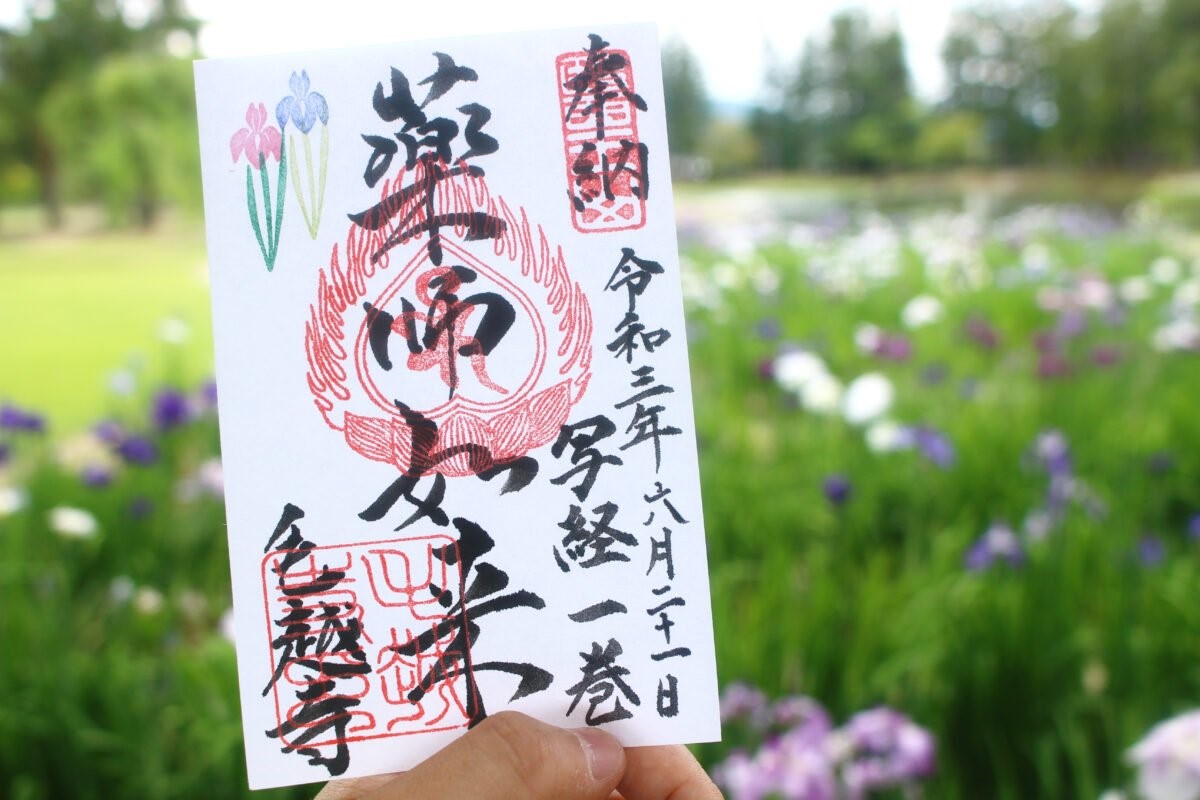 奉納
令和三年六月二十一日
写経一巻
薬師如来
毛越寺